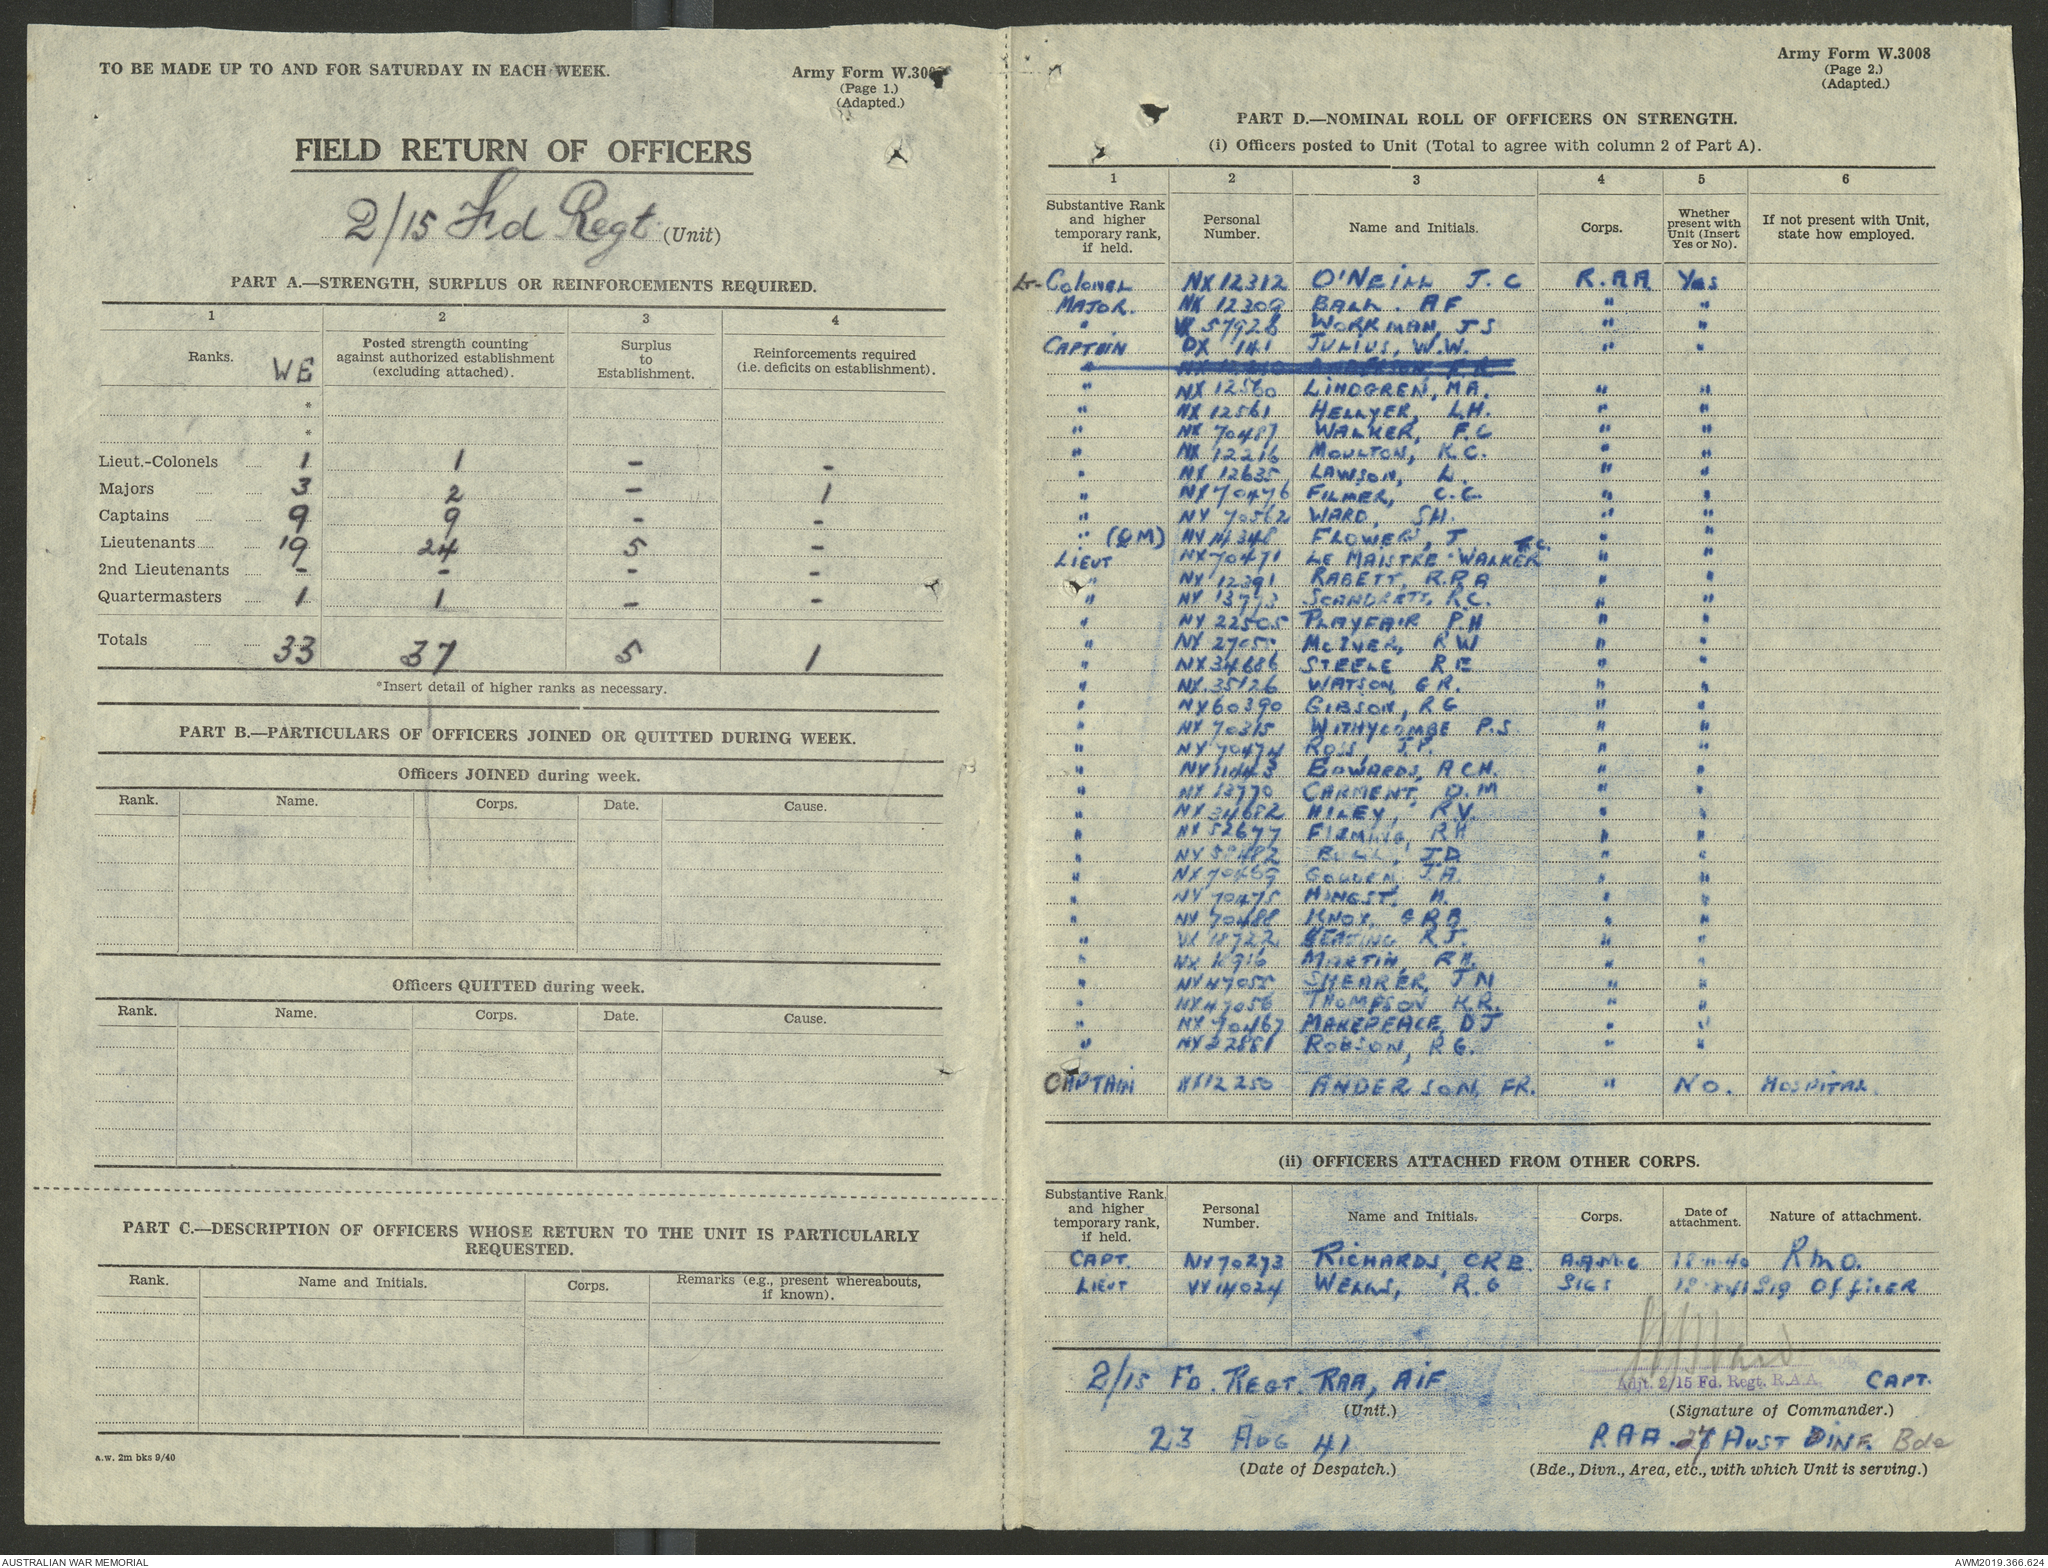 TO BE MADE UP TO AND FOR SATURDAY IN EACH WEEK.
Army Form W.3008
(Page 1.)
(Adapted.)
FIELD RETURN OF OFFICERS
2/15 Fd Regt (Unit)
PART A.—STRENGTH, SURPLUS OR REINFORCEMENTS REQUIRED.
1 2 3 4
Ranks. WE Posted strength counting against authorized establishment (excluding attached). Surplus to Establishment. Reinforcements required (i.e. deficits on establishment).
*
*
Lieut.-Colonels 1 1 – –
Majors 3 2 – 1
Captains 9 9 – –
Lieutenants 19 24 5 –
2nd Lieutenants – – – –
Quartermasters 1 1 – –
Totals 33 37 5 1
*Insert detail of higher ranks as necessary.
PART B.—PARTICULARS OF OFFICERS JOINED OR QUITTED DURING WEEK.
Officers JOINED during week.
Rank. Name. Corps. Date. Cause.
Officers QUITTED during week.
Rank. Name. Corps. Date. Cause.
PART C.—DESCRIPTION OF OFFICERS WHOSE RETURN TO THE UNIT IS PARTICULARLY
REQUESTED.
Rank. Name and Initials. Corps. Remarks (e.g., present whereabouts, if known).
a.w. 2m bks 9/40
Army Form W.3008
(Page 2.)
(Adapted.)
PART D.—NOMINAL ROLL OF OFFICERS ON STRENGTH.
(i) Officers posted to Unit (Total to agree with column 2 of Part A).
1 2 3 4 5 6
Substantive Rank and higher temporary rank, if held. Personal Number. Name and Initials. Corps. Whether present with Unit (Insert Yes or No). If not present with Unit, state how employed.
Lt-COLONEL NX 12312 O'NEILL J.C R.AA Yes
MAJOR. NX 12309 BALL. AF " "
" 57926 WORKMAN, JS " "
CAPTAIN DX 141 JULIUS, W.W. " "
" NX 12560 LINDGREN, MA. " "
" NX 12561 HELLYER, L.H. " "
" NX 70487 WALKER, F.C " "
" NX 12216 MOULTON, K.C. " "
" NX 12635 LAWSON, L. " "
" NX 70476 FILMER, C.C. " "
" NX 70562 WARD, SH. " "
" (QM) NX 14348 FLOWERS, J " "
LIEUT NX 70471 LE MAISTRE-WALKER F.C. " "
" NX 12391 RABETT, R.R.B " "
" NX 13773 SCANDRETT, R.C. " "
" NX 22505 PLAYFAIR P.H " "
" NX McIVER, RW " "
" NX 34686 STEELE R E " "
" NX 35126 WATSON, G R. " "
" NX 60390 GIBSON, RG " "
" NX 70315 WITHYCOMBE P.S. " "
" NX 70474 ROSS, J.P. " "
" NX 11443 EDWARDS, ACH. " "
" NX 12770 CARMENT, D.M " "
" NX 34682 HILEY, R.V. " "
" NX 52677 FLEMING, RH " "
" NX BULL, J.D. " "
" NX 70469 GOLDEN J.A. " "
" NX 70475 HINGST. H. " "
" NX 70488 KNOX, GRB " "
" VX 18722 KEATING RJ. " "
" NX MARTIN, RH. " "
" NX 47055 SHEARER, JN " "
" NX 47056 THOMPSON K.R. " "
" NX 70467 MAKEPEACE, DJ " "
" NX 22881 ROBSON, R G. " "
CAPTAIN NX12250 ANDERSON, FR. " No. HOSPITAL.
(ii) OFFICERS ATTACHED FROM OTHER CORPS.
Substantive Rank and higher temporary rank, if held. Personal Number. Name and Initials. Corps. Date of attachment. Nature of attachment.
CAPT. NX70273 RICHARDS, CRB. A.A.M.C 18-11-40 RMO.
LIEUT VX14024 WELLS, R.G SIGS Sig Officer
2/15 FD. REGT. RAA, AIF
(Unit.)
Adjt. 2/15 Fd. Regt. R.A.A. CAPT.
(Signature of Commander.)
23 AUG 41
(Date of Despatch.)
RAA. 27 AUST INF. Bde
(Bde., Divn., Area, etc., with which Unit is serving.)
AUSTRALIAN WAR MEMORIAL
AWM2019.366.624